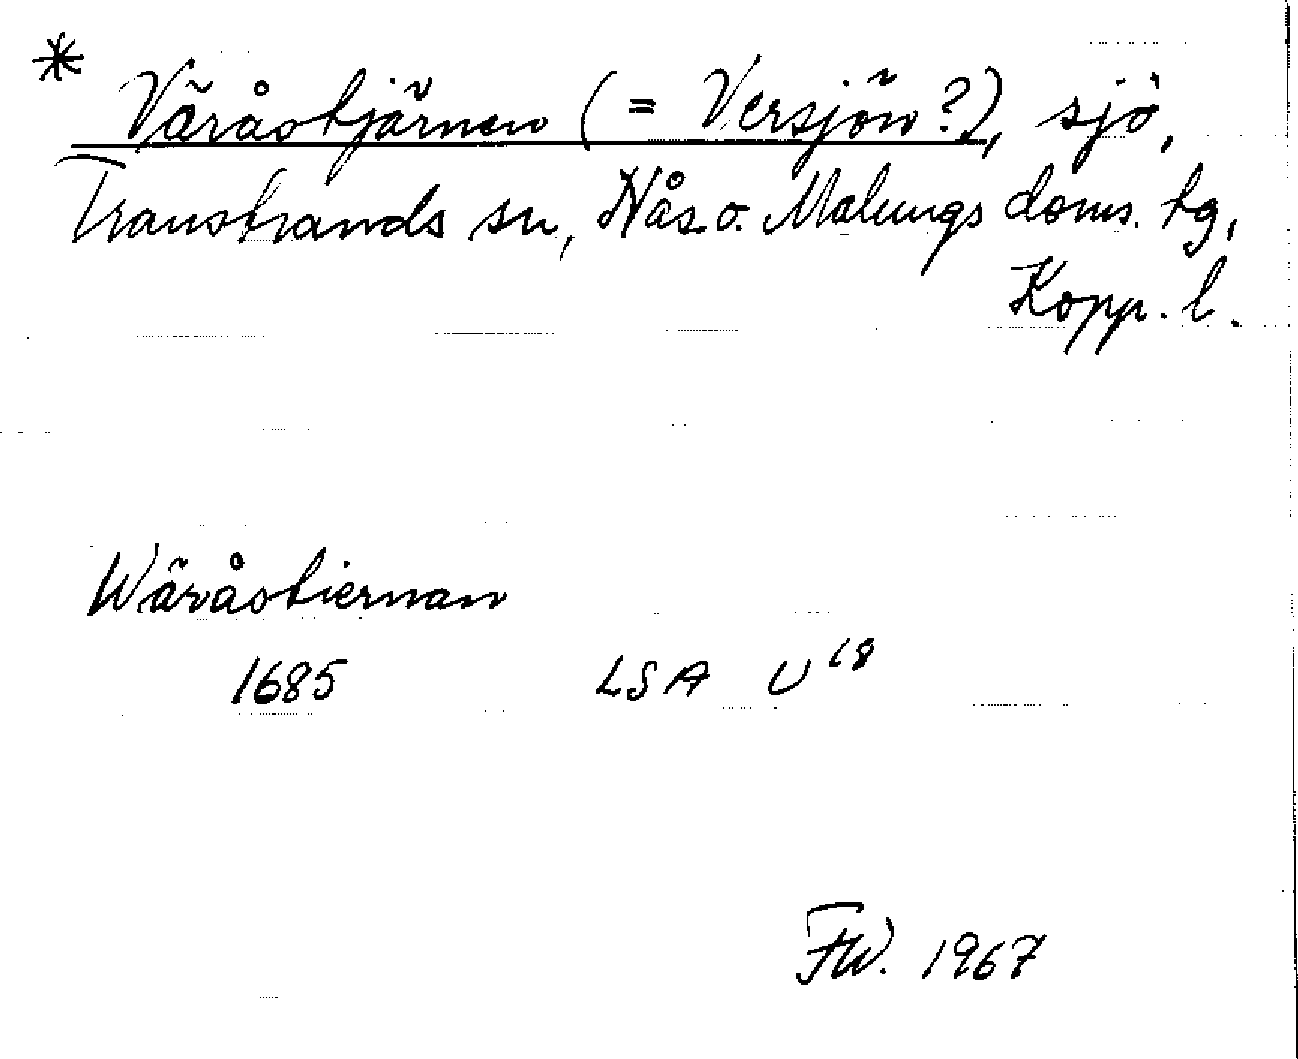 * Väråstjärnen (= Versjön?), sjö,
Transtrands sn, Nås o. Malungs doms. tg,
Kopp. l.
Wäråstiernan
1685 LSA U 18
FW. 1967